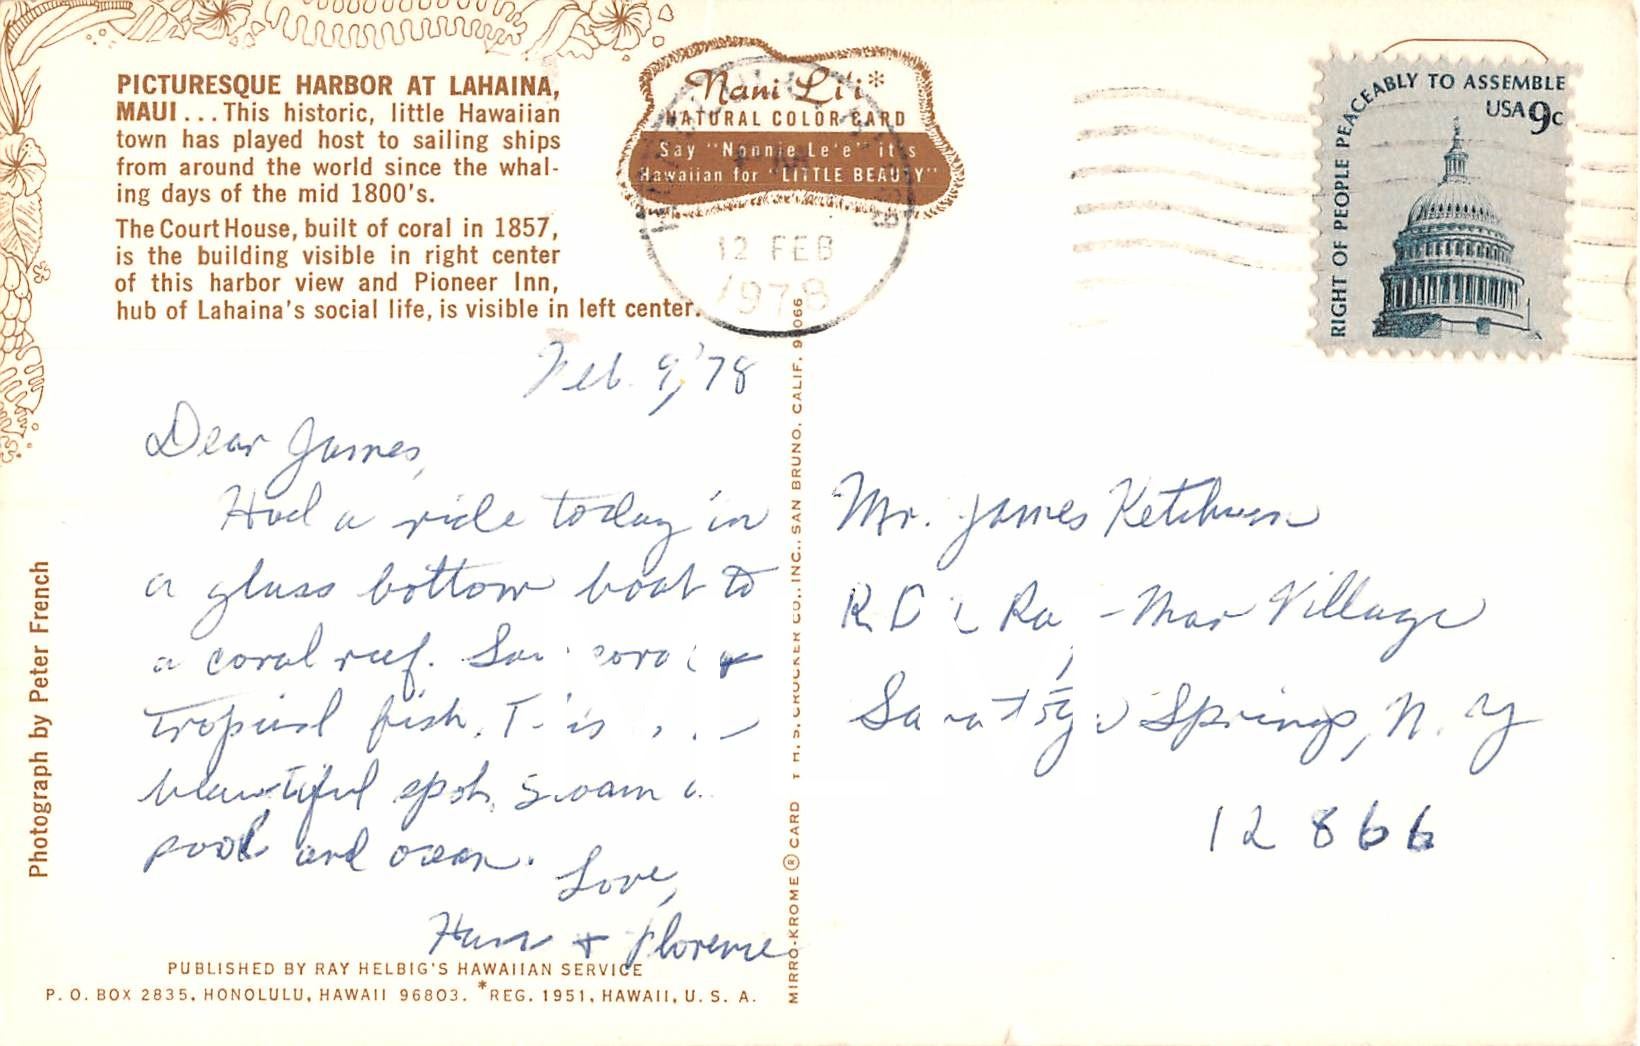 PICTURESQUE HARBOR AT LAHAINA,
MAUI...This historic, little Hawaiian
town has played host to sailing ships
from around the world since the whal-
ing days of the mid 1800's.
The Court House, built of coral in 1857,
is the building visible in right center
of this harbor view and Pioneer Inn,
hub of Lahaina's social life, is visible in left center.
Nani Li'i*
NATURAL COLOR CARD
Say "Nonnie Le'e" it's
Hawaiian for "LITTLE BEAUTY"
12 FEB
1978
RIGHT OF PEOPLE PEACEABLY TO ASSEMBLE
USA 9c
Feb. 9, '78
Dear James,
Had a ride today in
a glass bottom boat to
a coral reef. Saw coral &
tropical fish. This is
beautiful spot. Swam
pool and ocean.
Love,
& Florence
Mr. James Ketchum
R D Ra-Mar Village
Saratoga Springs, N. Y
12866
Photograph by Peter French
MIRRO-KROME ® CARD BY H. S. CROCKER CO., INC., SAN BRUNO, CALIF. 94066
PUBLISHED BY RAY HELBIG'S HAWAIIAN SERVICE
P. O. BOX 2835, HONOLULU, HAWAII 96803. *REG. 1951, HAWAII, U. S. A.